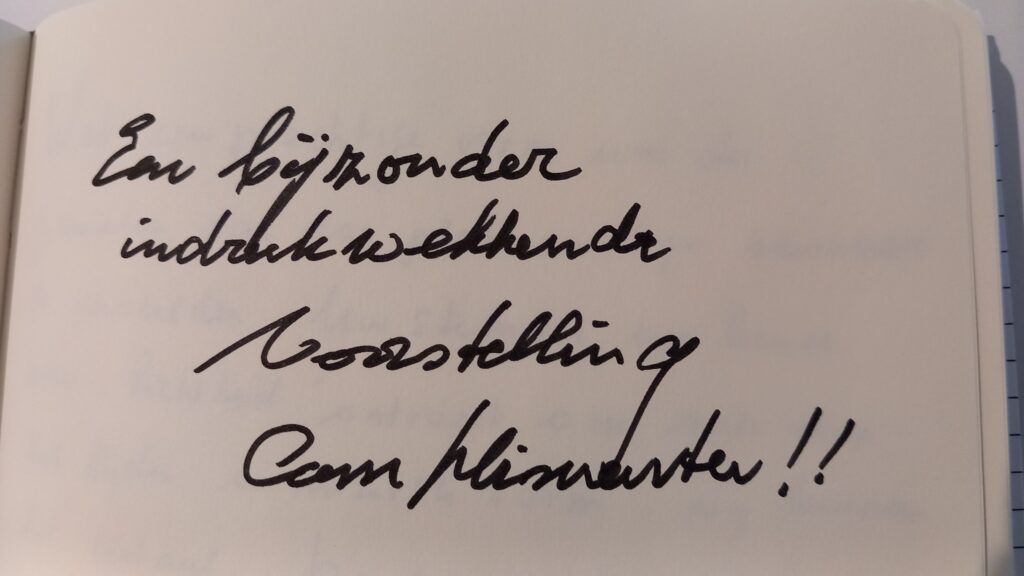 Een bijzonder
indrukwekkende
Voorstelling
Complimenten!!